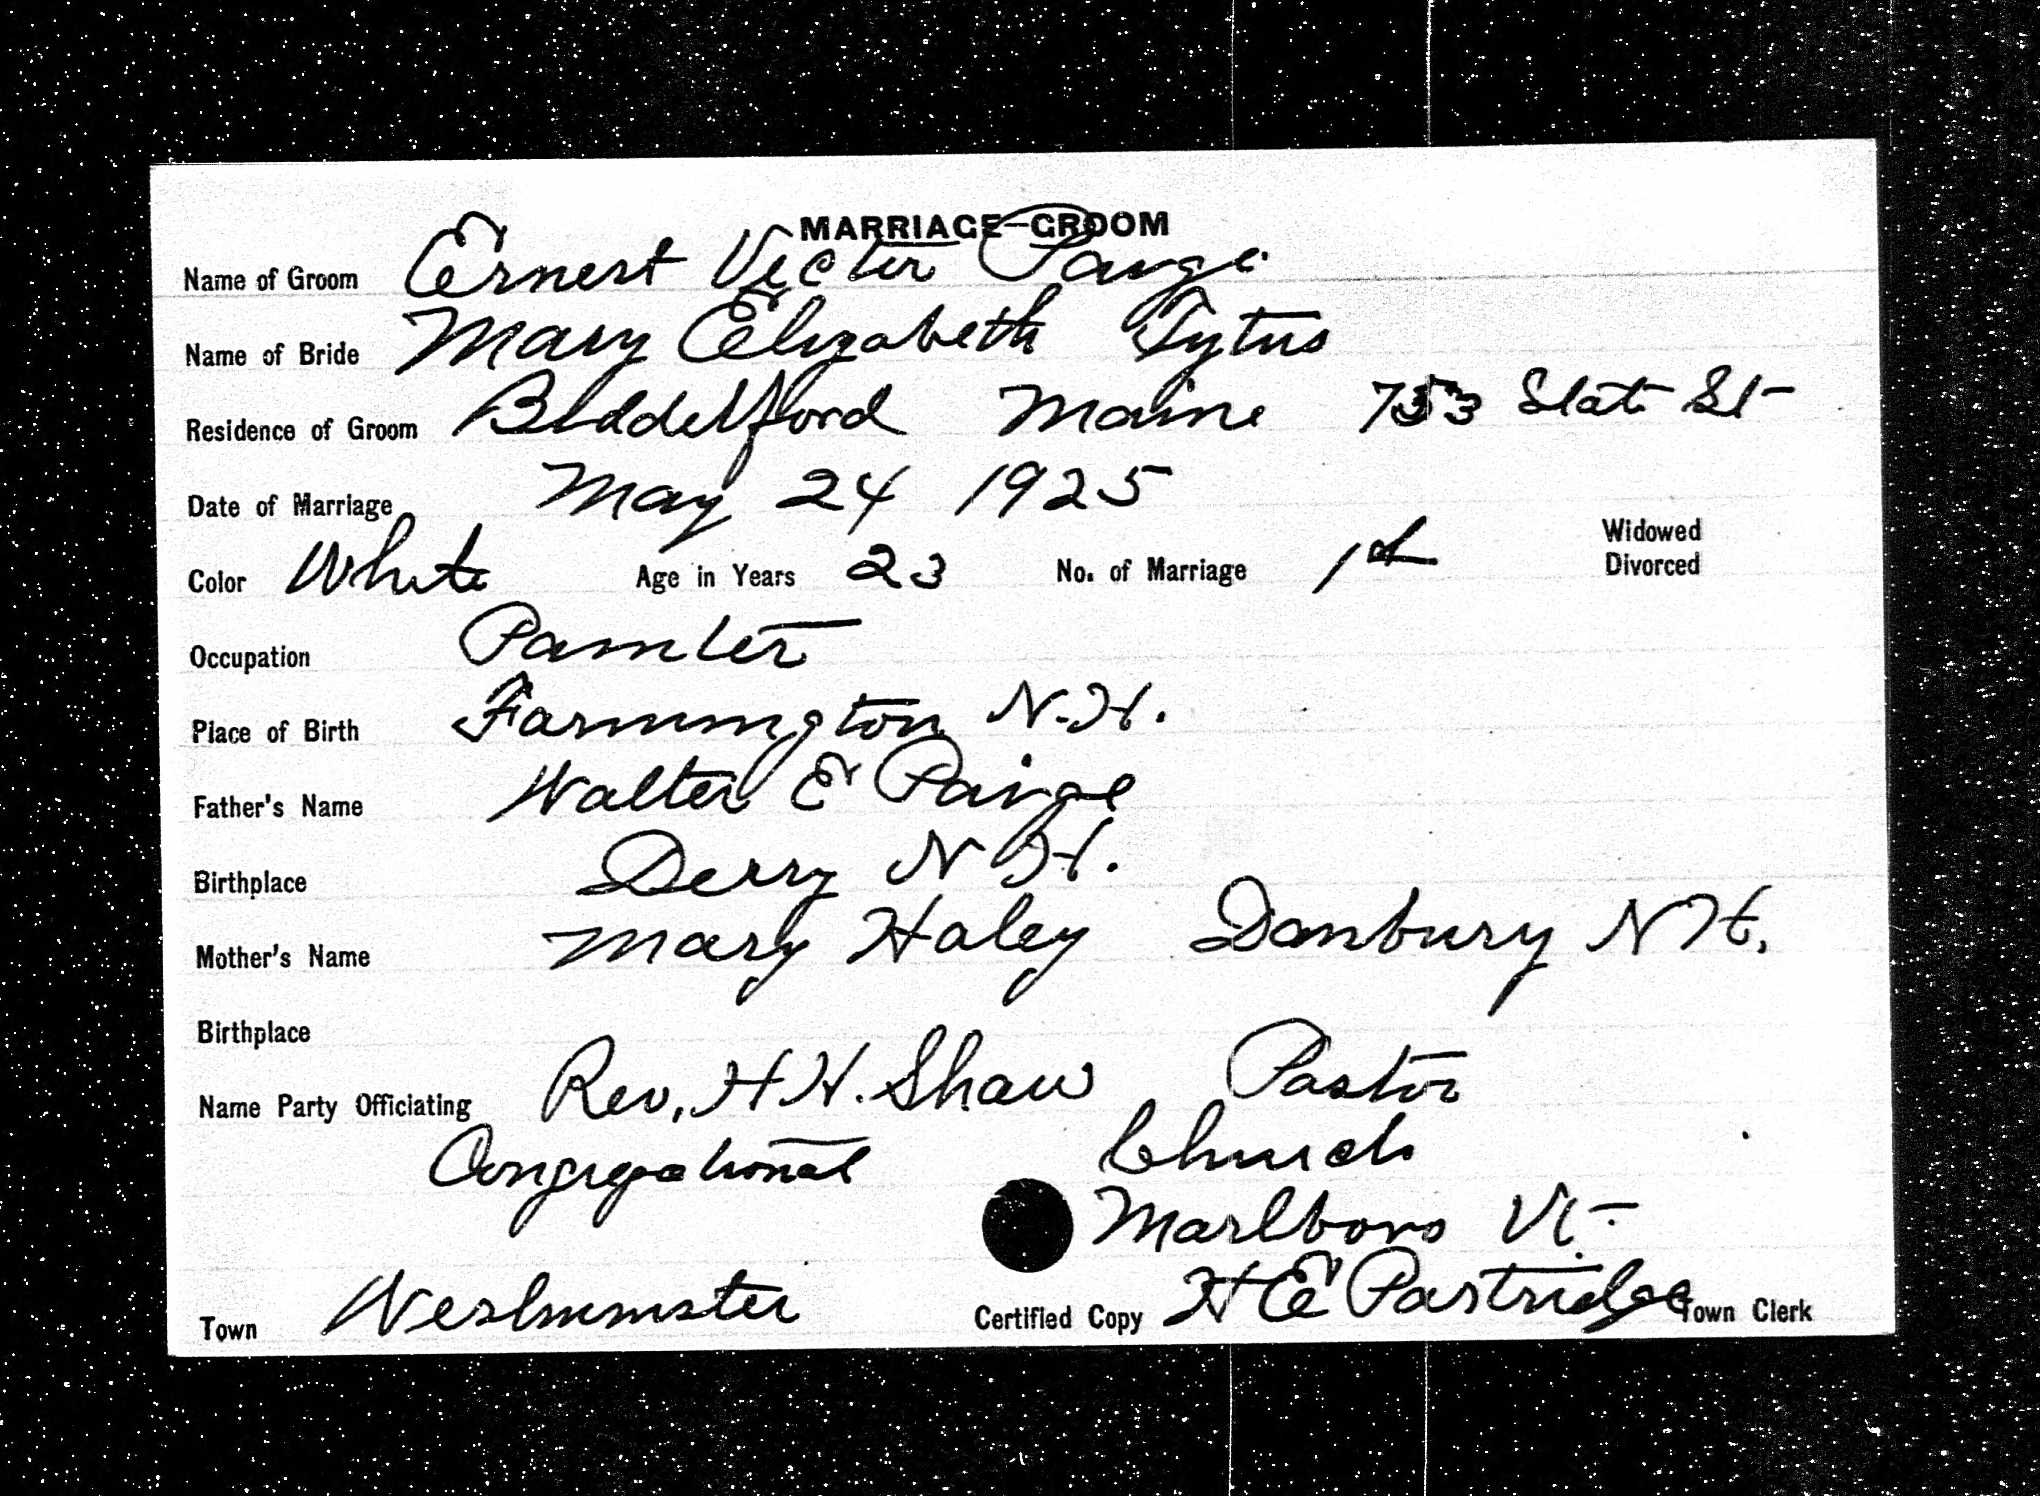 MARRIAGE-GROOM
Name of Groom Ernest Victor Paige
Name of Bride Mary Elizabeth Tytus
Residence of Groom Biddeford Maine 753 State St
Date of Marriage May 24 1925
Widowed
Color White Age in Years 23 No. of Marriage 1st Divorced
Occupation Painter
Place of Birth Farmington N.H.
Father's Name Walter E Paige
Birthplace Derry N H.
Mother's Name Mary Haley Danbury N H.
Birthplace
Name Party Officiating Rev. H H. Shaw Pastor
Congregational Church
Marlboro Vt.
Town Westminster Certified Copy H E Partridge Town Clerk